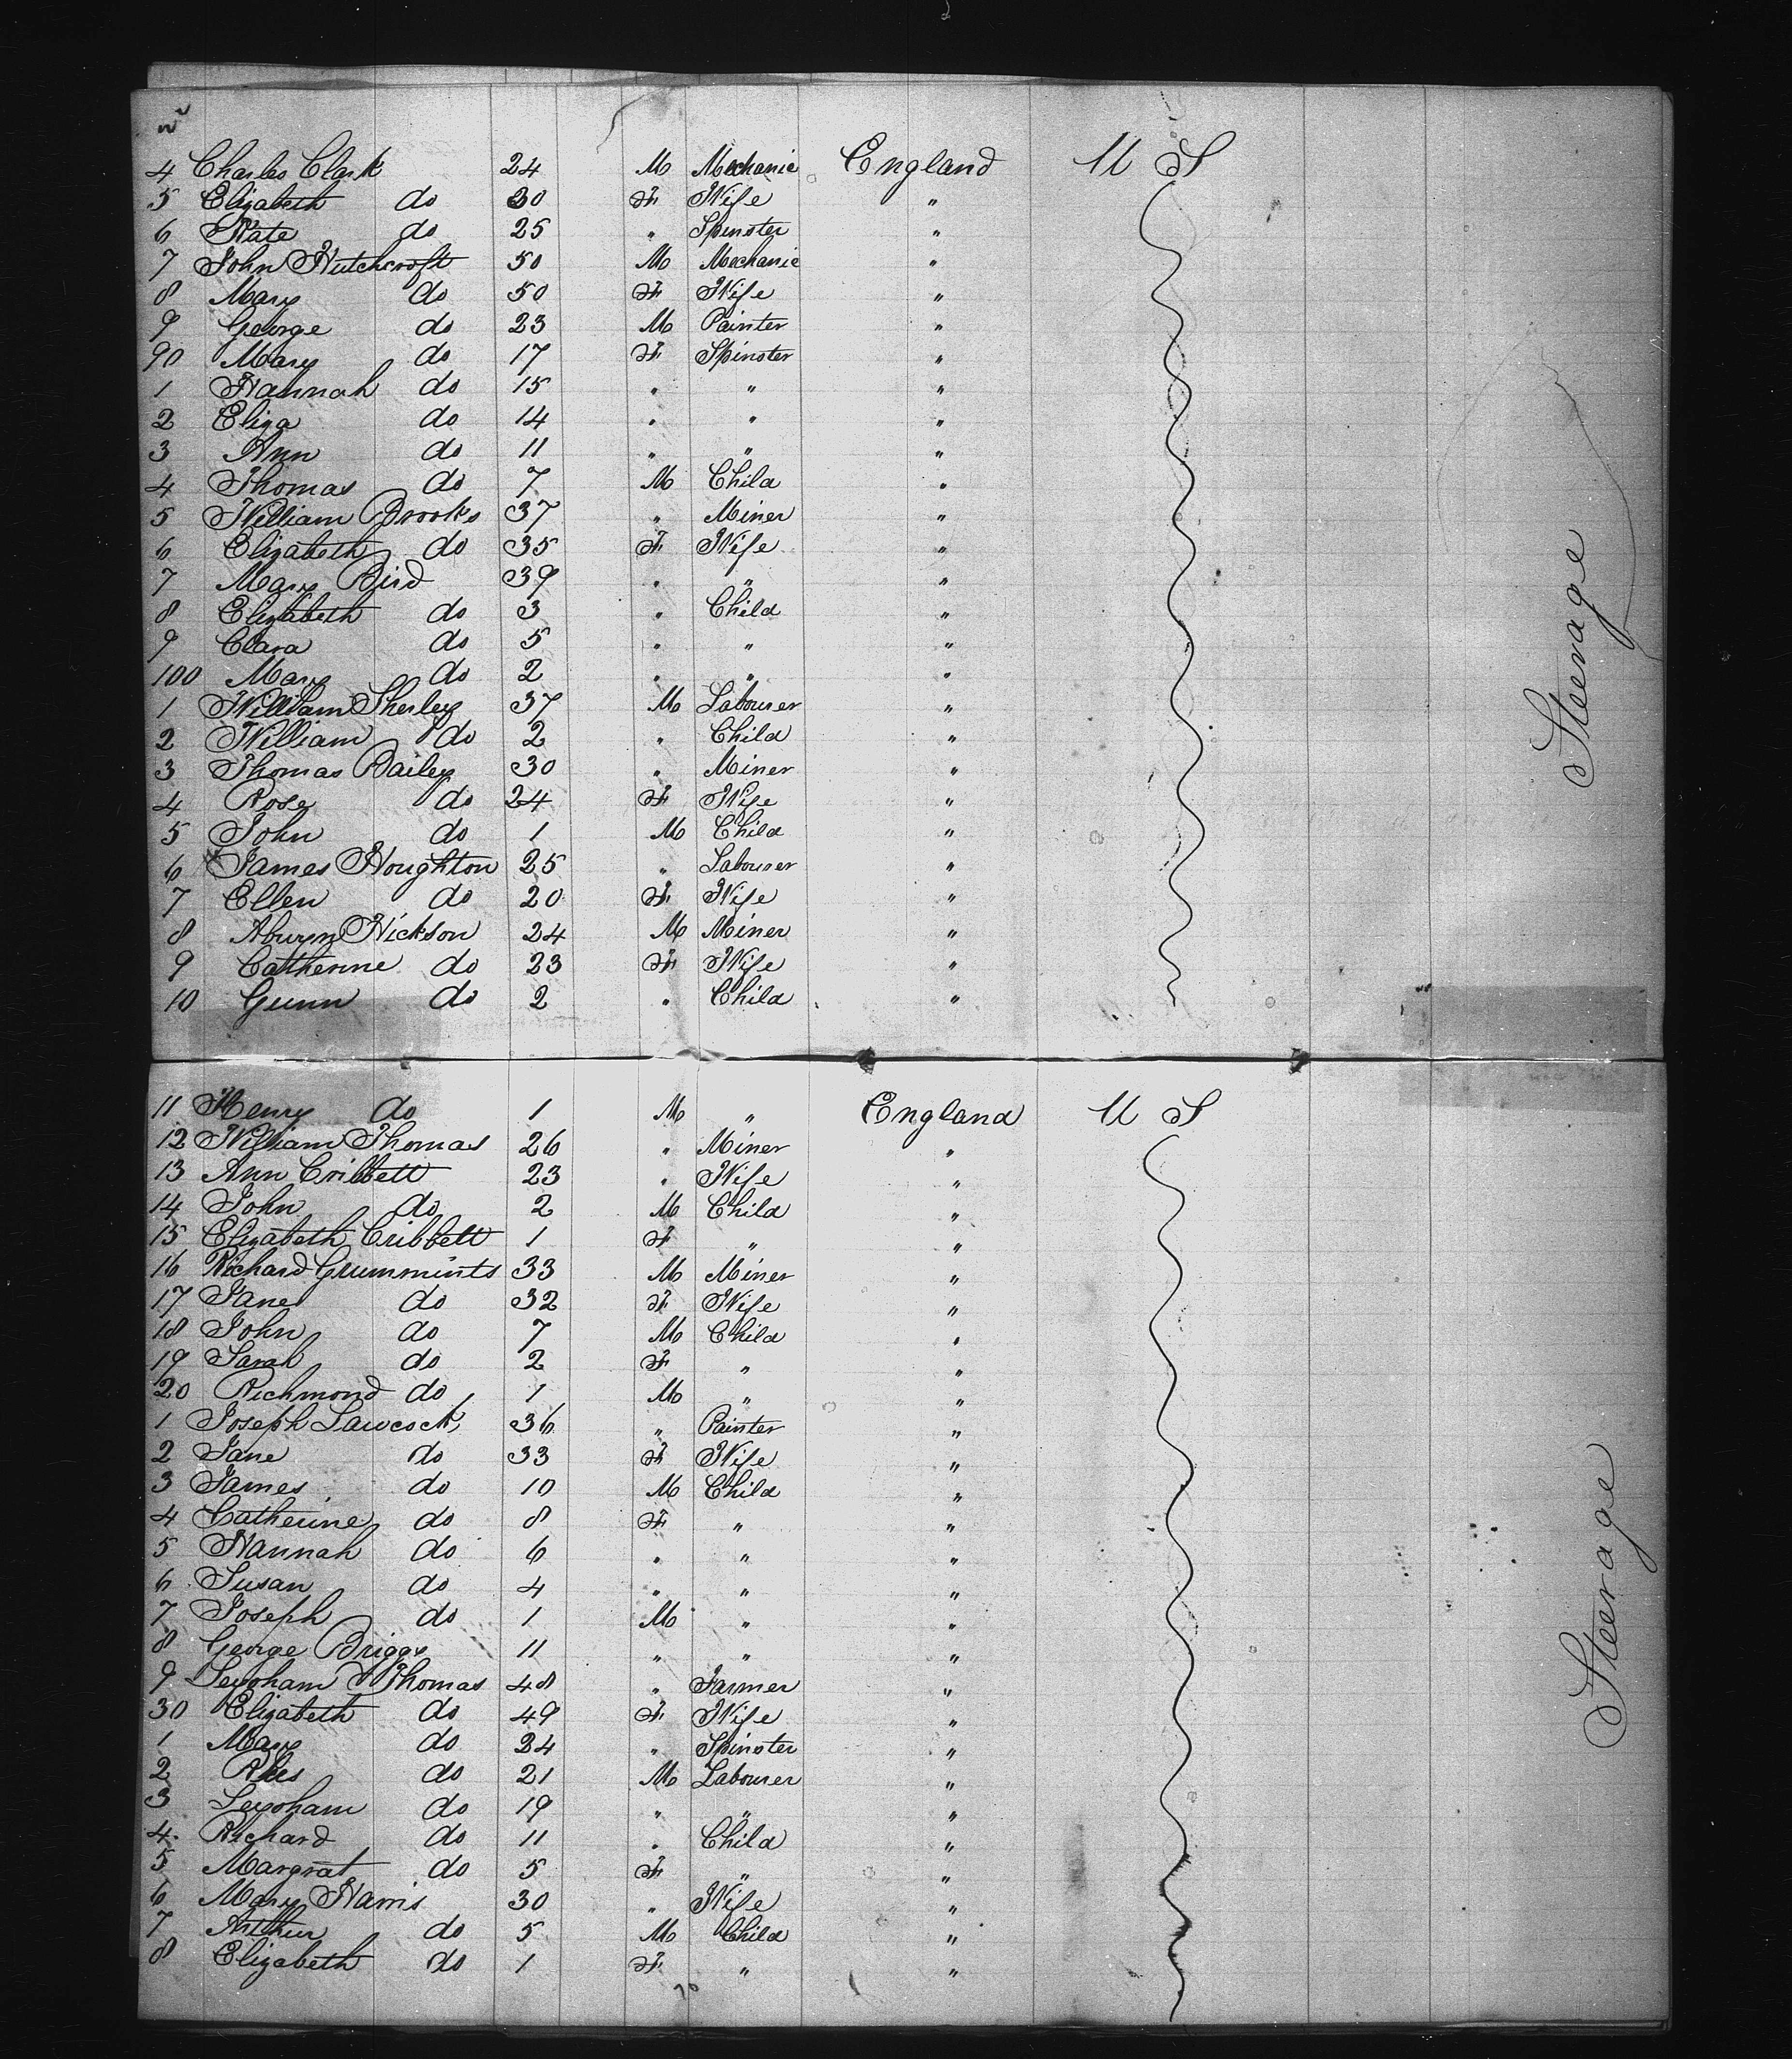 4 Charles Clark 24 M Mechanic England U S
5 Elizabeth do 30 F Wife "
6 Kate do 25 " Spinster "
7 John Hutchcroft 50 M Mechanic "
8 Mary do 50 F Wife "
9 George do 23 M Painter "
90 Mary do 17 F Spinster "
1 Hannah do 15 " " "
2 Eliza do 14 " " "
3 Ann do 11 " " "
4 Thomas do 7 M Child "
5 William Brooks 37 " Miner "
6 Elizabeth do 35 F Wife "
7 Mary Bird 39 " " "
8 Elizabeth do 3 " Child "
9 Clara do 5 " " "
100 Mary do 2 " " "
1 William Sherley 37 M Labourer "
2 William do 2 " Child "
3 Thomas Bailey 30 " Miner "
4 Rose do 24 F Wife "
5 John do 1 M Child "
6 James Houghton 25 " Labourer "
7 Ellen do 20 F Wife "
8 Hickson 24 M Miner "
9 Catherine do 23 F Wife "
10 Gunn do 2 " Child "
Steerage
11 Henry do 1 M " England U S
12 William Thomas 26 " Miner "
13 Ann Cribbett 23 " Wife "
14 John do 2 M Child "
15 Elizabeth Cribbett 1 F " "
16 Richard Grummints 33 M Miner "
17 Jane do 32 F Wife "
18 John do 7 M Child "
19 Sarah do 2 F " "
20 Richmond do 1 M " "
1 Joseph Lawcock 36 " Painter "
2 Jane do 33 F Wife "
3 James do 10 M Child "
4 Catherine do 8 F " "
5 Hannah do 6 " " "
6 Susan do 4 " " "
7 Joseph do 1 M " "
8 George Briggs 11 " " "
9 Leyoham Thomas 48 " Farmer "
30 Elizabeth do 49 F Wife "
1 Mary do 24 " Spinster "
2 Rees do 21 M Labourer "
3 Leyoham do 19 " " "
4 Richard do 11 " Child "
5 Margrat do 5 F " "
6 Mary Harris 30 " Wife "
7 Arthur do 5 M Child "
8 Elizabeth do 1 F " "
Steerage